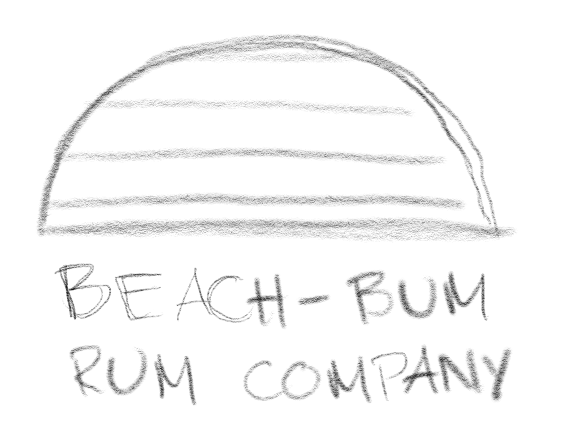 BEACH-BUM
RUM COMPANY